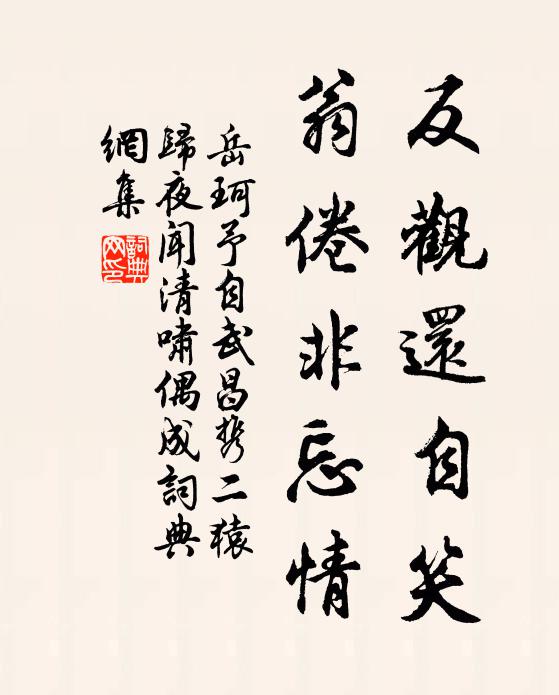 反觀還自笑
翁倦非忘情
岳珂予自武昌携二猿
歸夜闻清嘯偶成詞典
網集
詞典
网印